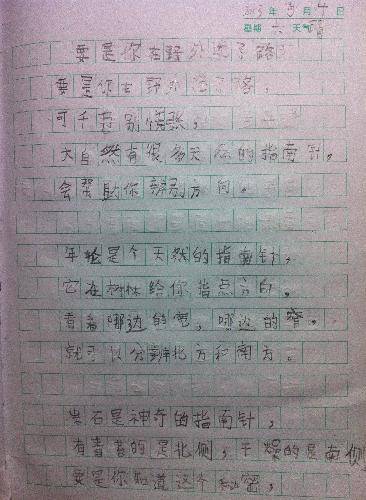 2013年3月4日
星期六 天气晴
要是你在野外迷了路
要是你在野外迷了路，
可千万别慌张，
大自然有很多天然的指南针，
会帮助你辨别方向。
年轮是个天然的指南针，
它在树林给你指点方向，
看看哪边的宽，哪边的窄。
就可以分辨北方和南方。
岩石是神奇的指南针，
有青苔的是北侧，干燥的是南侧
要是你知道这个秘密，